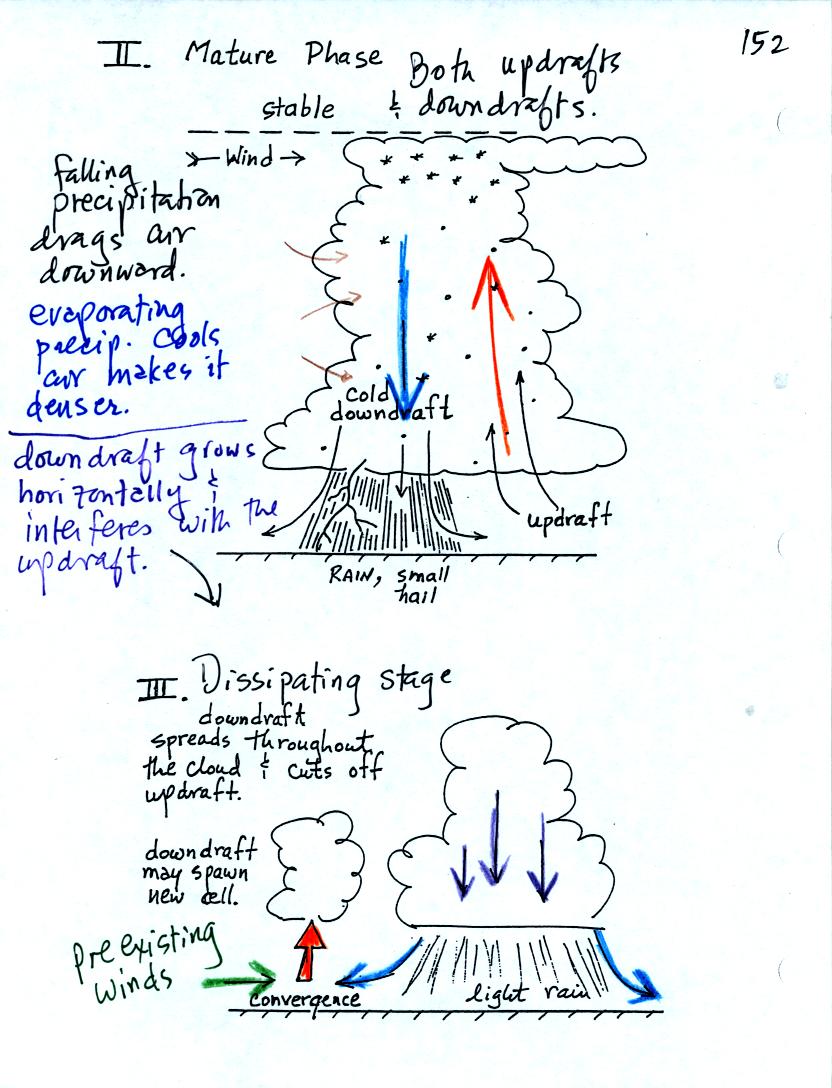 152
II. Mature Phase
Both updrafts
& downdrafts.
stable
Wind
falling
precipitation
drags air
downward.
evaporating
precip. cools
air makes it
denser.
cold
downdraft
downdraft grows
horizontally &
interferes with the
updraft.
updraft
RAIN, small
hail
III. Dissipating stage
downdraft
spreads throughout
the cloud & cuts off
updraft.
downdraft
may spawn
new cell.
Preexisting
winds
convergence
light rain